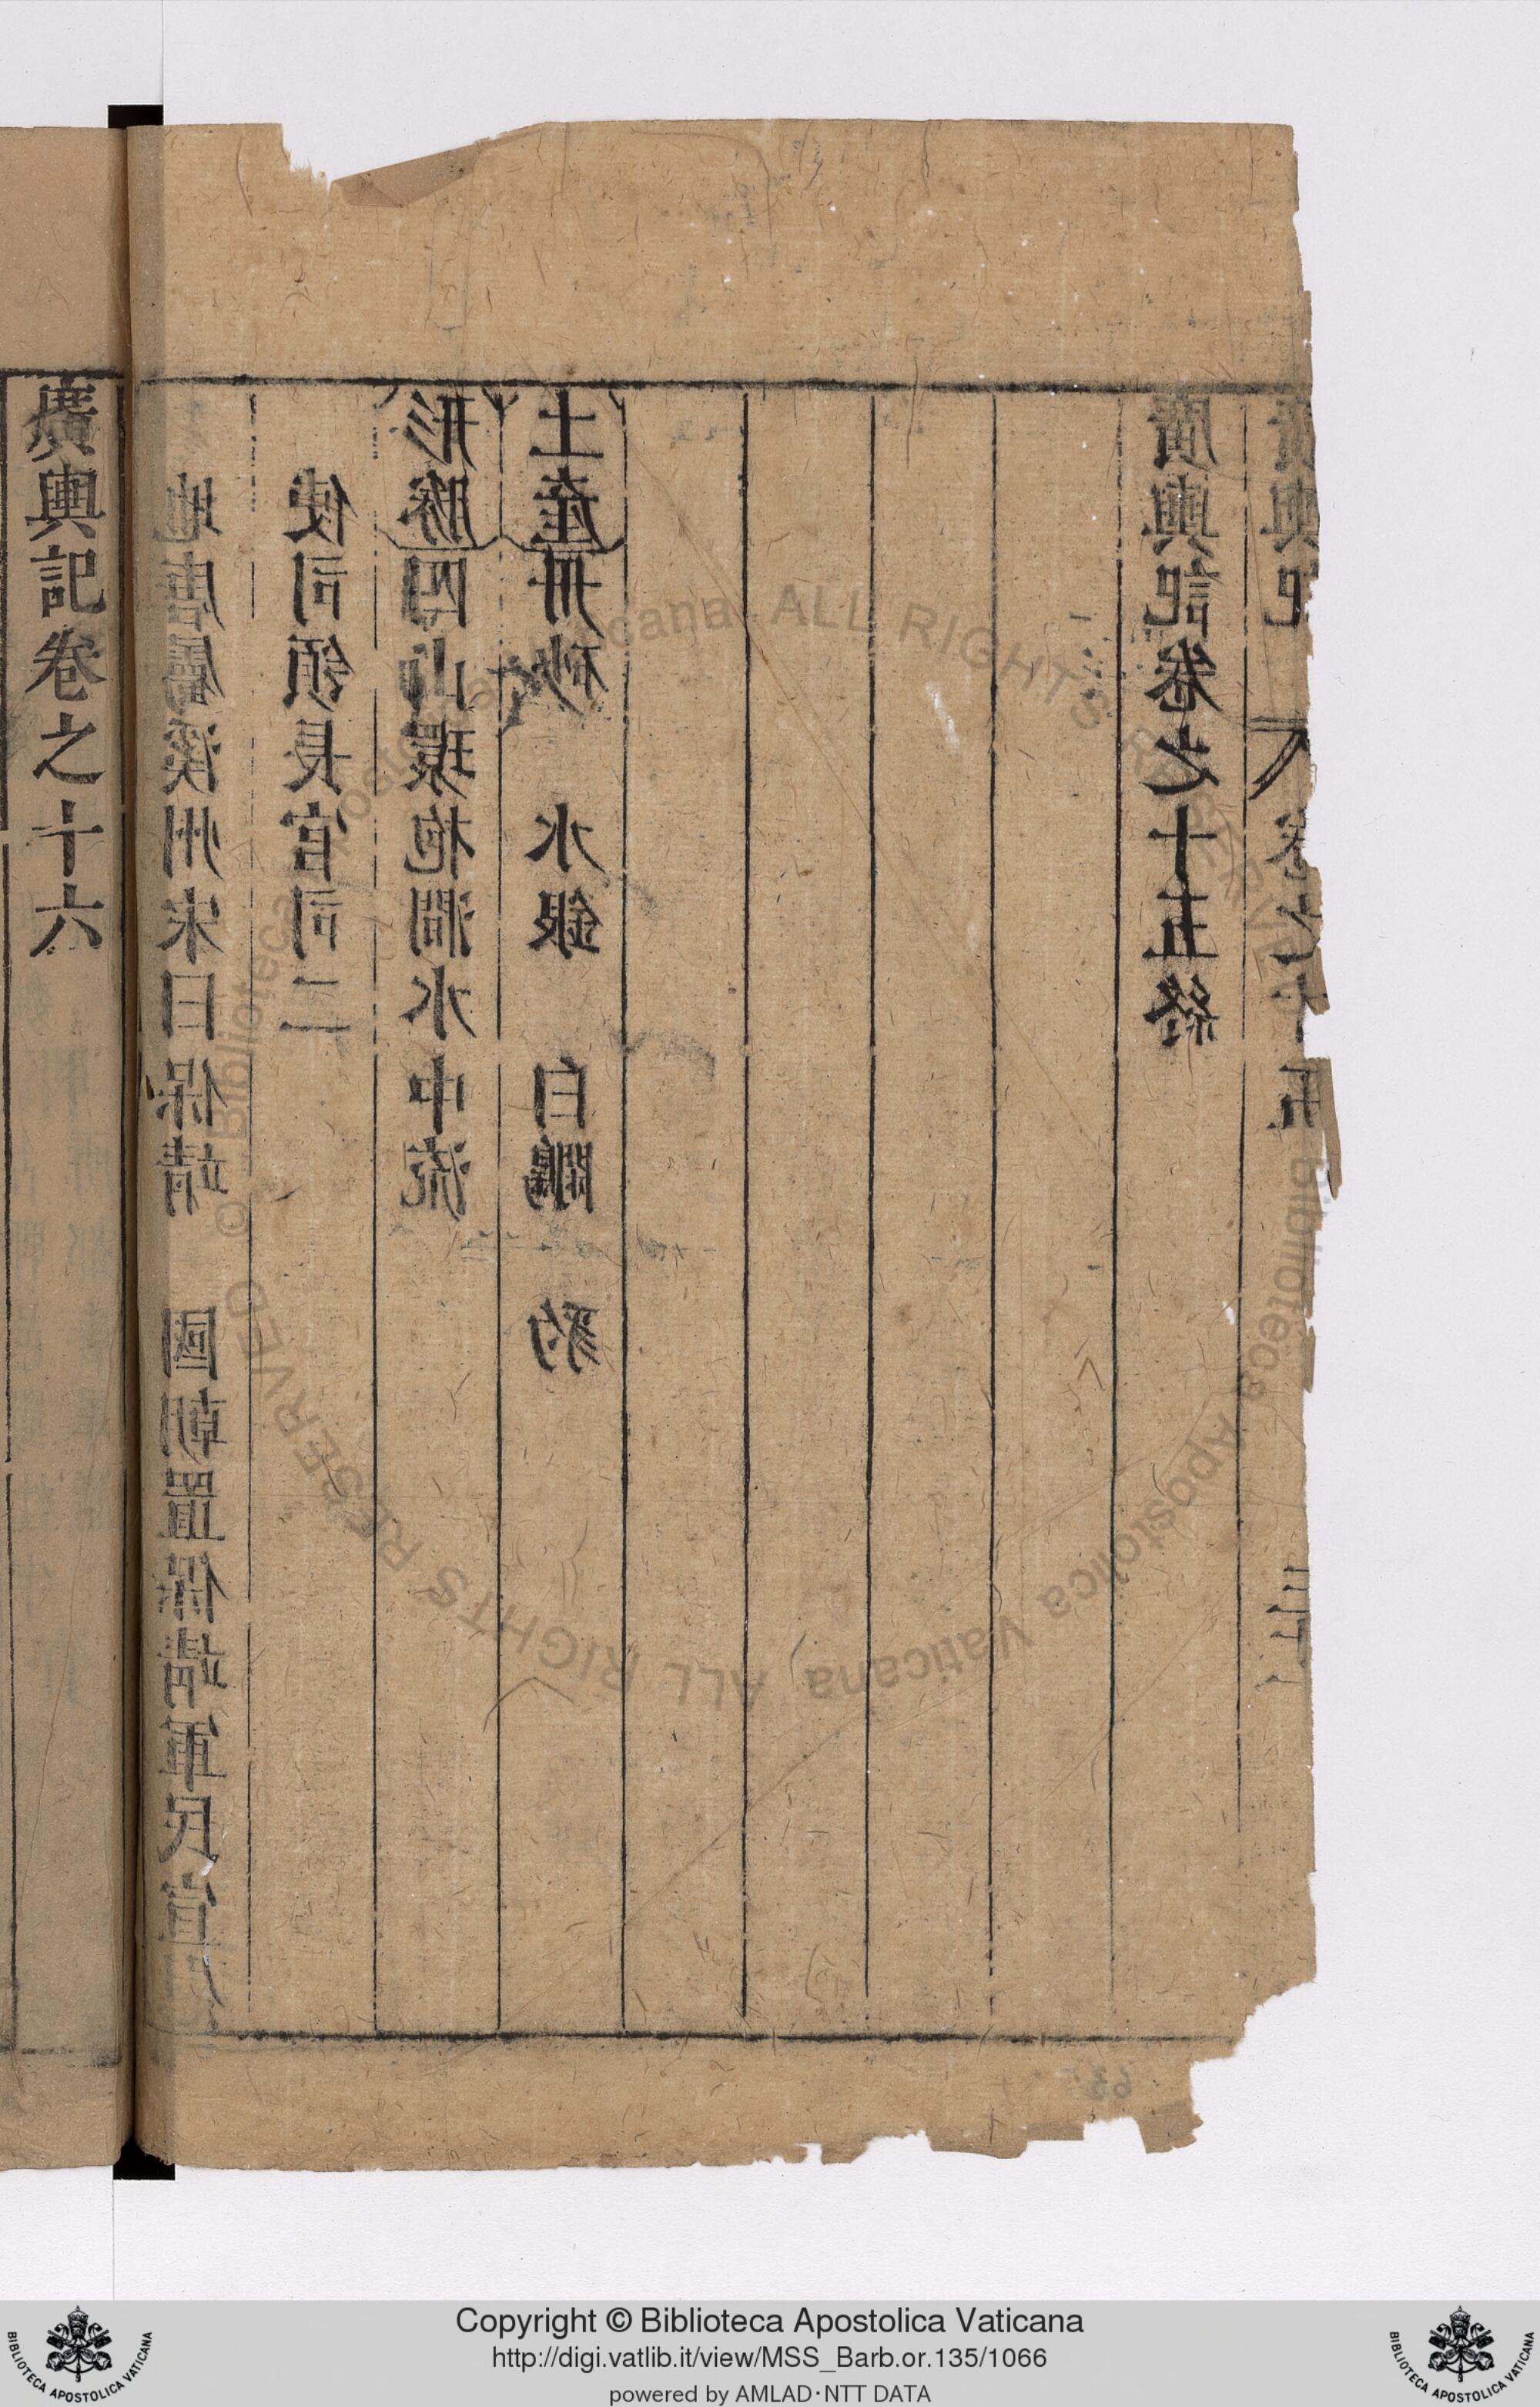 地唐屬溪州宋曰保靖 國朝置保靖軍民宣
使司領長官司二
形勝四山環抱澗水中流
土產丹砂 水銀 白鷴 豹
廣輿記卷之十五終
廣輿記 卷之十五
廣輿記卷之十六
635
© Biblioteca Apostolica Vaticana ALL RIGHTS RESERVED
© Biblioteca Apostolica Vaticana ALL RIGHTS RESERVED
Copyright © Biblioteca Apostolica Vaticana
http://digi.vatlib.it/view/MSS_Barb.or.135/1066
powered by AMLAD·NTT DATA
BIBLIOTECA APOSTOLICA VATICANA
BIBLIOTECA APOSTOLICA VATICANA